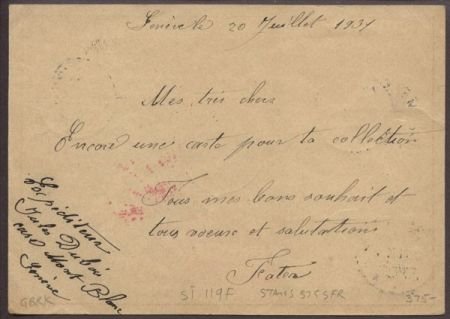 Genève le 20 Juillet 1937
Mes très chers
Encore une carte pour ta collection
Tous mes bons souhait et
tous voeux et salutations
Expéditeur
Jules Dubois
Mont Blanc
Genève
GBRK
SI 119F
375-